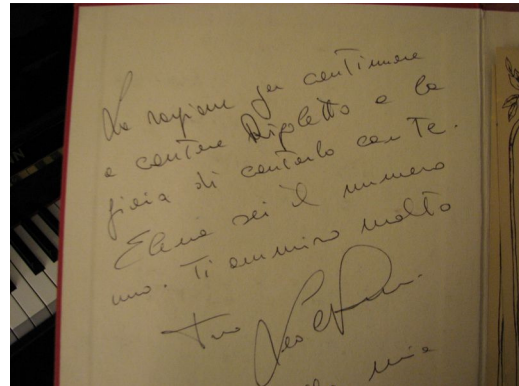 La ragione per continuare
a cantare Rigoletto e la
gioia di cantarlo con te.
Elena sei il numero
uno. Ti ammiro molto
Tuo Leo
mia